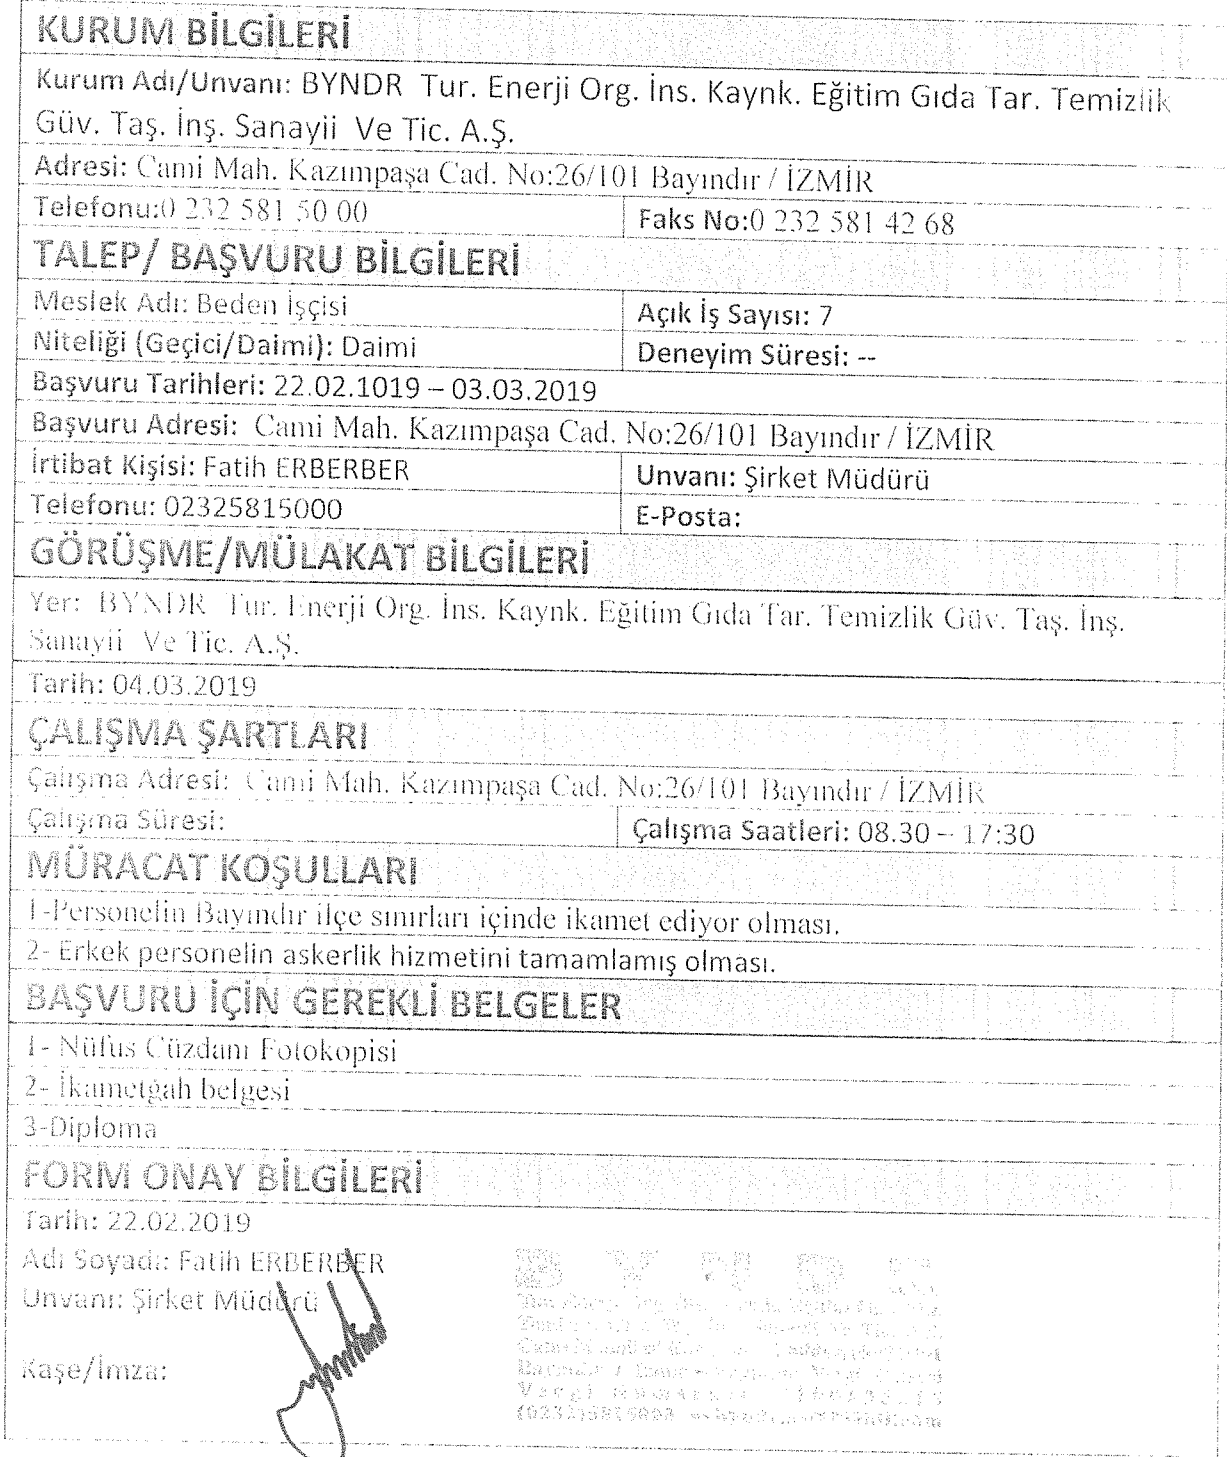 KURUM BİLGİLERİ
Kurum Adı/Unvanı: BYNDR Tur. Enerji Org. İns. Kaynk. Eğitim Gıda Tar. Temizlik
Güv. Taş. İnş. Sanayii Ve Tic. A.Ş.
Adresi: Cami Mah. Kazımpaşa Cad. No:26/101 Bayındır / İZMİR
Telefonu:0 232 581 50 00 Faks No:0 232 581 42 68
TALEP/ BAŞVURU BİLGİLERİ
Meslek Adı: Beden İşçisi Açık İş Sayısı: 7
Niteliği (Geçici/Daimi): Daimi Deneyim Süresi: --
Başvuru Tarihleri: 22.02.1019 – 03.03.2019
Başvuru Adresi: Cami Mah. Kazımpaşa Cad. No:26/101 Bayındır / İZMİR
İrtibat Kişisi: Fatih ERBERBER Unvanı: Şirket Müdürü
Telefonu: 02325815000 E-Posta:
GÖRÜŞME/MÜLAKAT BİLGİLERİ
Yer: BYNDR Tur. Enerji Org. İns. Kaynk. Eğitim Gıda Tar. Temizlik Güv. Taş. İnş.
Sanayii Ve Tic. A.Ş.
Tarih: 04.03.2019
ÇALIŞMA ŞARTLARI
Çalışma Adresi: Cami Mah. Kazımpaşa Cad. No:26/101 Bayındır / İZMİR
Çalışma Süresi: Çalışma Saatleri: 08.30 – 17:30
MÜRACAT KOŞULLARI
1-Personelin Bayındır ilçe sınırları içinde ikamet ediyor olması.
2- Erkek personelin askerlik hizmetini tamamlamış olması.
BAŞVURU İÇİN GEREKLİ BELGELER
1- Nüfus Cüzdanı Fotokopisi
2- İkametgah belgesi
3-Diploma
FORM ONAY BİLGİLERİ
Tarih: 22.02.2019
Adı Soyadı: Fatih ERBERBER
Unvanı: Şirket Müdürü
Kaşe/İmza: